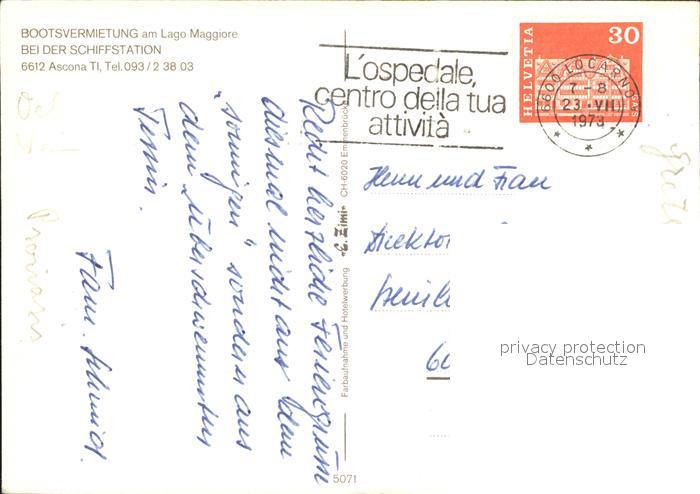 BOOTSVERMIETUNG am Lago Maggiore
BEI DER SCHIFFSTATION
6612 Ascona TI, Tel. 093 / 2 38 03
L'ospedale,
centro della tua
attività
HELVETIA
30
6600 LOCARNO
7-8
23.VII
1973
Recht herzliche Feriengrüsse
diesmal nicht aus dem
„sonnigen" sondern aus
dem „überschwemmten
Tessin.
Fam. Schmid.
Farbaufnahme und Hotelwerbung «E. Zimi» CH-6020 Emmenbrücke
5071
Herrn und Frau
Direktor
60
privacy protection
Datenschutz